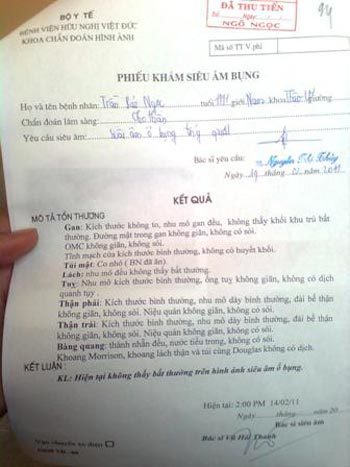 BỘ Y TẾ
BỆNH VIỆN HỮU NGHỊ VIỆT ĐỨC
KHOA CHẨN ĐOÁN HÌNH ẢNH
ĐÃ THU TIỀN
Ngày
NGÔ NGỌC
94
Mã số TT V.phí
PHIẾU KHÁM SIÊU ÂM BỤNG
Họ và tên bệnh nhân: Trần tuổi giới Nam khoa giường
Chẩn đoán lâm sàng:
Yêu cầu siêu âm: ổ bụng tổng quát
Bác sĩ yêu cầu: Nguyễn
Ngày, tháng
KẾT QUẢ
MÔ TẢ TỔN THƯƠNG
Gan: Kích thước không to, nhu mô gan đều, không thấy khối khu trú bất
thường. Đường mật trong gan không giãn, không có sỏi.
OMC không giãn, không sỏi.
Tĩnh mạch cửa kích thước bình thường, không có huyết khối.
Túi mật: Co nhỏ ( BN đã ăn)
Lách: nhu mô đều không thấy bất thường.
Tụy: Nhu mô kích thước bình thường, ống tụy không giãn, không có dịch
quanh tụy.
Thận phải: Kích thước bình thường, nhu mô dày bình thường, đài bể thận
không giãn, không sỏi. Niệu quản không giãn, không có sỏi.
Thận trái: Kích thước bình thường, nhu mô dày bình thường, đài bể thận
không giãn, không sỏi. Niệu quản không giãn, không có sỏi.
Bàng quang: thành nhẵn đều, nước tiểu trong, không có sỏi.
Khoang Morrison, khoang lách thận và túi cùng Douglas không có dịch.
KẾT LUẬN :
KL: Hiện tại không thấy bất thường trên hình ảnh siêu âm ổ bụng.
Hiện tại: 2:00 PM 14/02/11
Ngày tháng năm 20
Bác sĩ siêu âm
Bác sĩ Vũ Hải Thanh